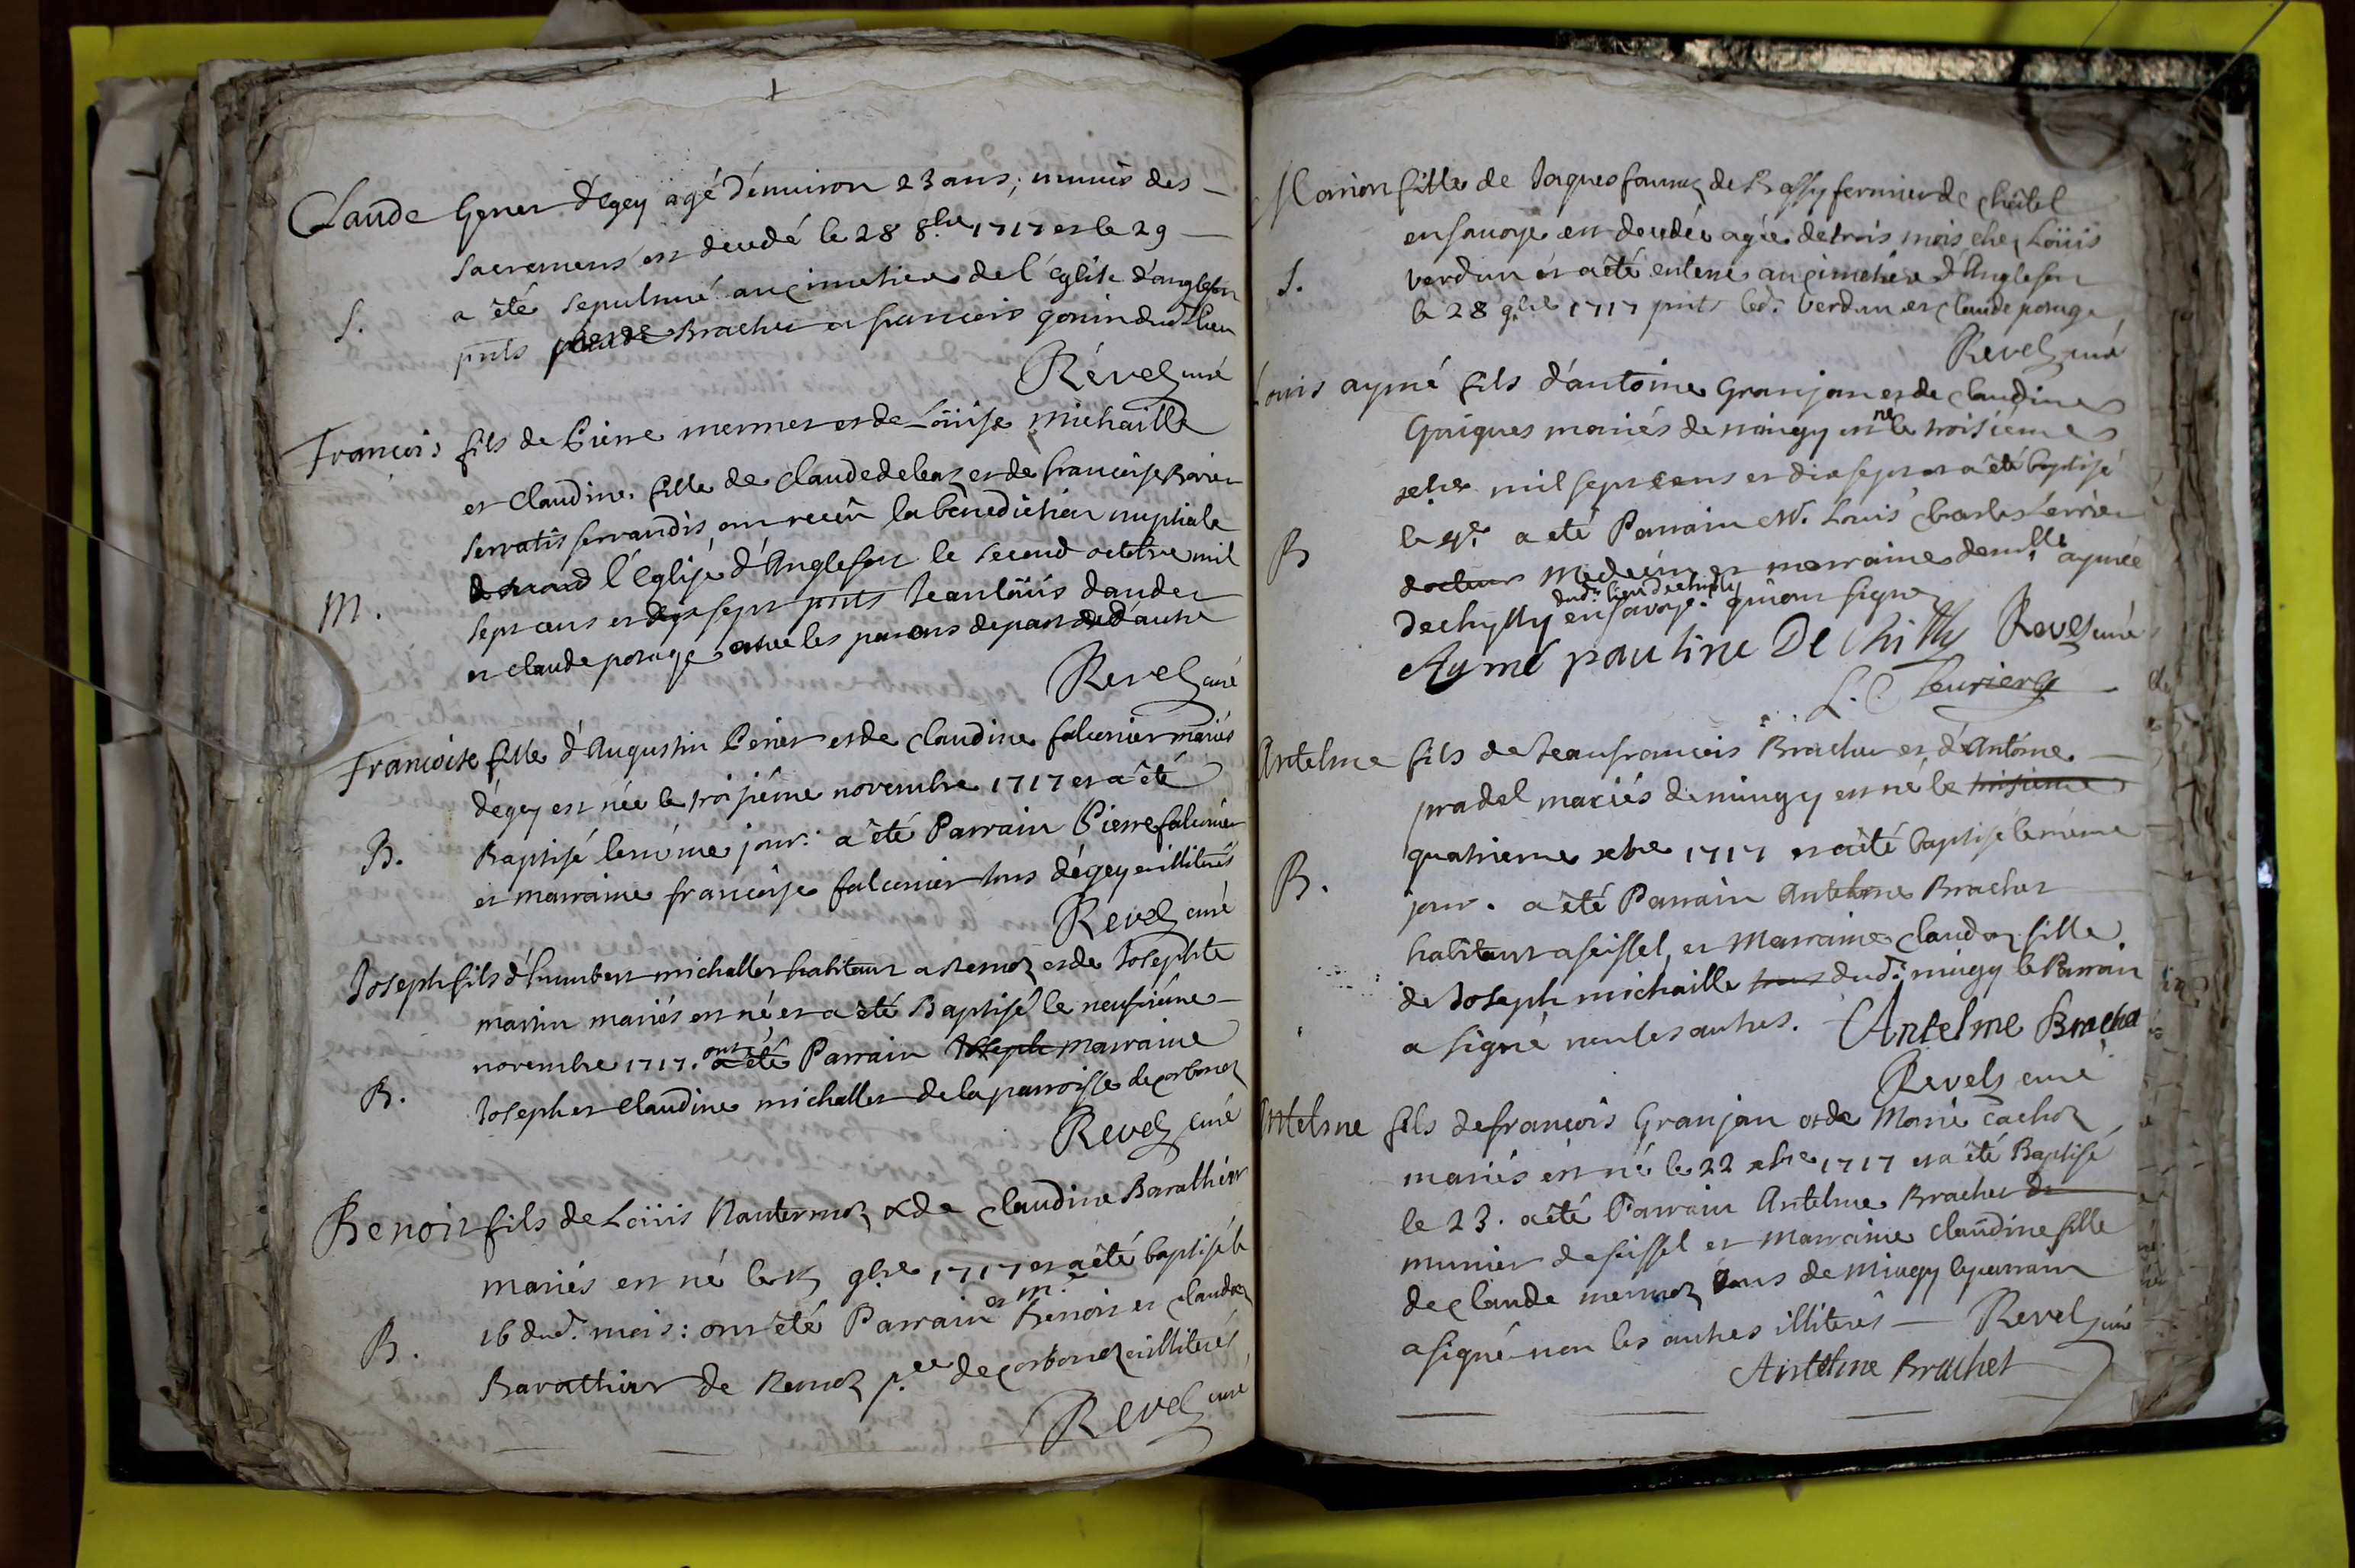 Claude Gener d'Egey agé d'environ 23 ans, munis des
sacremens est decedé le 28 8bre 1717 et le 29
a été sepulturé au cimetiere de l'Eglise d'anglefort
S.
pnts Brachet et francois gonin dud. lieu
Revel curé
François fils de Pierre mermet et de Loüise michaille
et Claudine fille de Claude deleaz et de francoise
servatis servandis, ont reçeu la bénédiction nuptiale
l'Eglise d'Anglefort le second octobre mil
M.
sept cens et dix sept pnts Jean loüis dauder
et claude poruge avec les parens de part et d'autre
Revel curé
Francoise fille d'Augustin Perier et de claudine falconier mariés
d'égey est née le troisième novembre 1717 et a été
B.
Baptisé le même jour. a été Parrain Pierre falconier
et marraine françoise falconier tous d'égey et illiterés
Revel curé
Joseph fils d'humbert michallet habitant a Remoz et de Josephte
martin mariés est né et a été Baptisé le neufième
novembre 1717. ont été Parrain Joseph marraine
B.
Joseph et Claudine michallet de la parroisse de corbonod
Revel curé
Benoit fils de Loüis Nantermoz & de Claudine Barathier
mariés est né le 15 9bre 1717 et a été baptisé le
16 dud. mois: ont été Parrain et m. Benoit et clauda
B.
Barathier de Remoz p.sse de corbonoz illiterés
Revel curé
Marion fille de Jaques de Bassy fermier de châtel
en savoye est decedée agée de trois mois chez Loüis
S.
verdun et a été enterré au cimetiere d'Anglefort
le 28 9bre 1717 pnts led. verdun et claude poruge
Revel curé
Louis aymé fils d'antoine Granjan et de claudine
Guigues mariés de mingy est né le troisième
xbre mil sept cens et dix sept et a été baptisé
le 4e a été Parrain Mr. Louis Charles
B
docteur Medecin et marraine demlle aymée
dechylly en savoye. qui ont signé
Aymé pauline De Chilly Revel curé
Antelme fils de Jean francois Brachet et d'Antoine
pradel mariés de mingy est né le troisieme
quatrieme xbre 1717 et a été baptisé le même
B.
jour. a été Parrain Antelme Brachet
habitant a seissel, et Marraine claudaz fille
de Joseph michaille tous dud. mingy le Parrain
a signé non les autres. Antelme Brachet
Revel curé
Antelme fils de françois Granjan et de Marie cachoz
mariés est né le 22 xbre 1717 et a été Baptisé
le 23. a été Parrain Antelme Brachet de
munier de seissel et marraine claudine fille
de claude mermoz tous de mingy le parrain
a signé non les autres illiterés Revel curé
Antelme Brachet